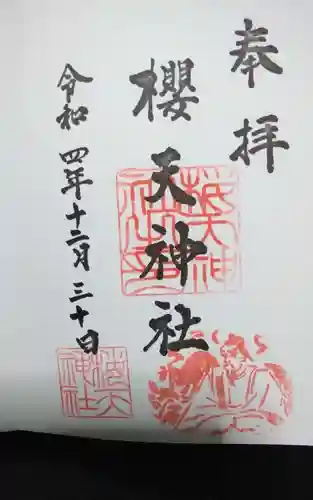 奉拝
櫻天神社
令和四年十二月三十日